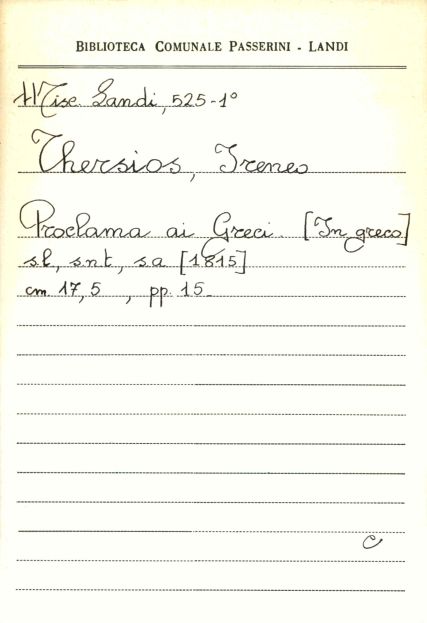 BIBLIOTECA COMUNALE PASSERINI - LANDI
Misc. Landi, 525-1°
Thersios, Ireneo
Proclama ai Greci. [In greco]
s.l., s.n.t., s.a [1815]
cm. 17,5 , pp. 15_
C